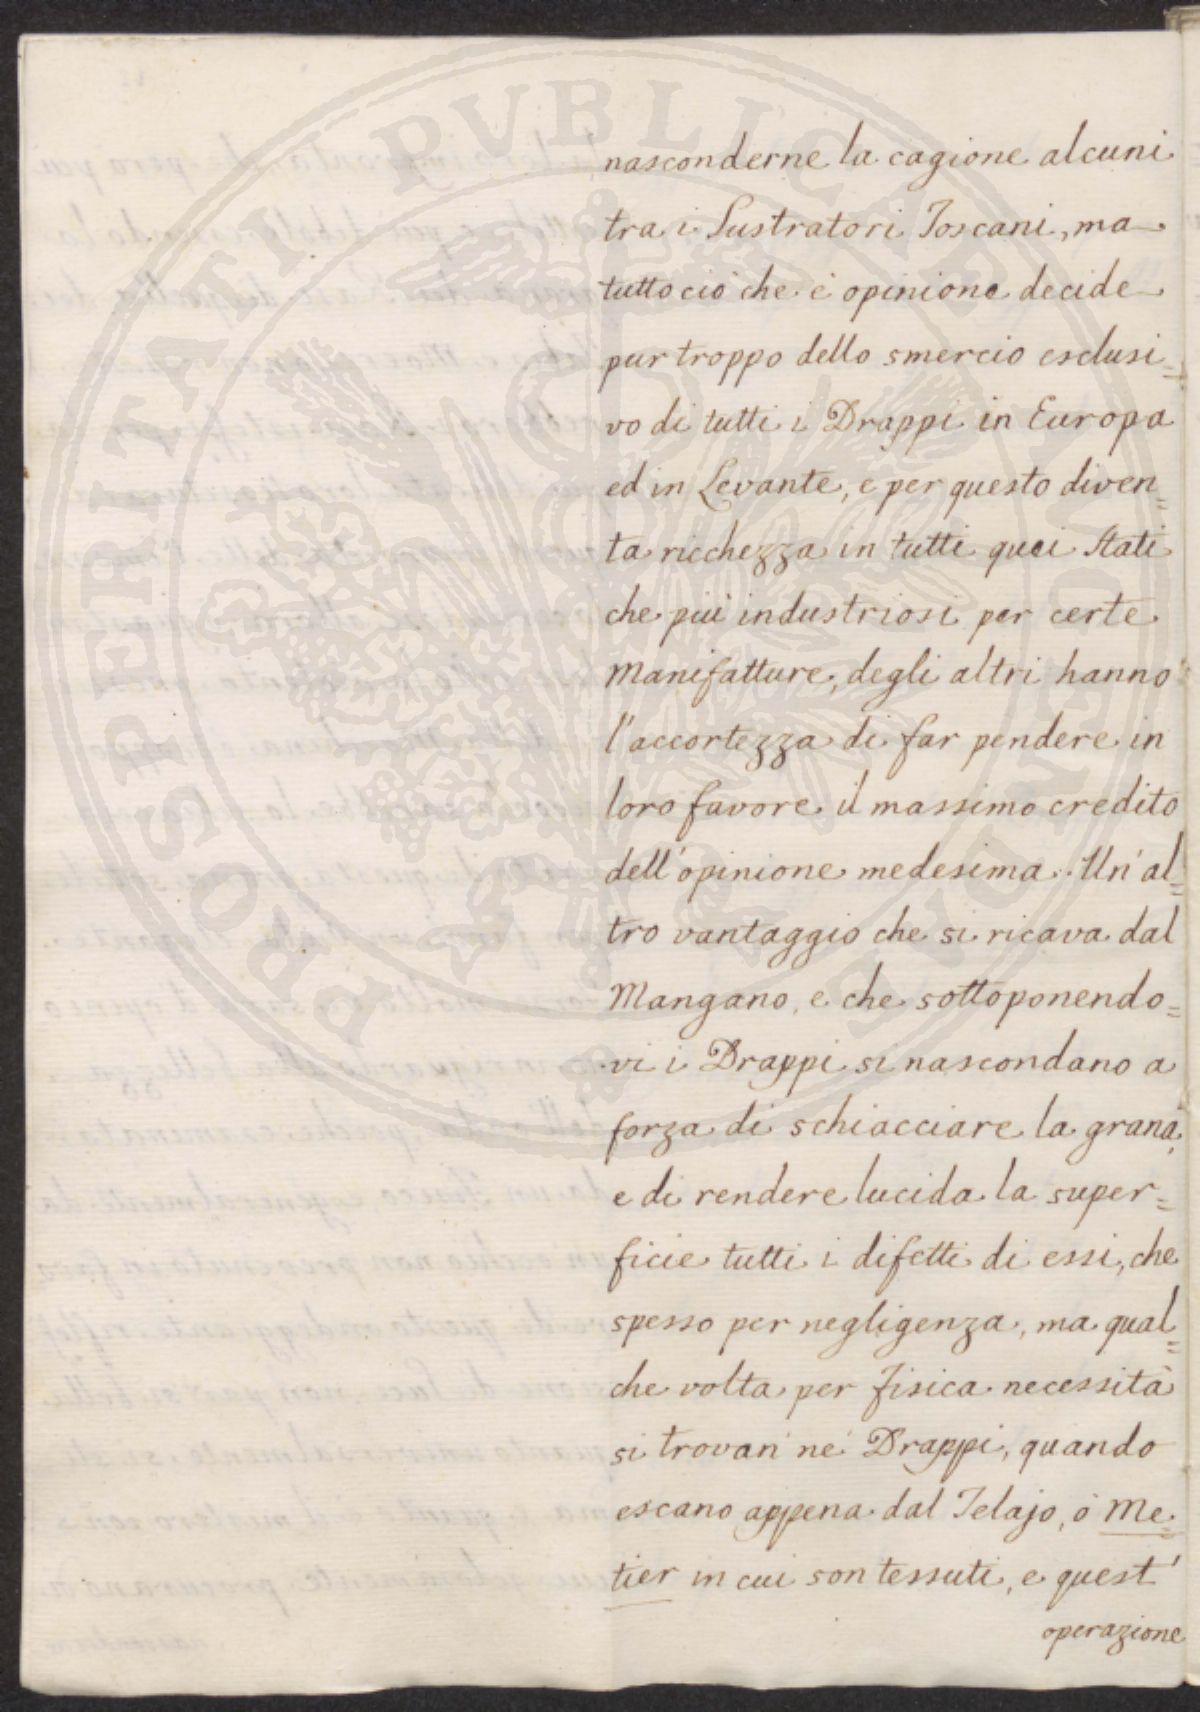 nasconderne la cagione alcuni
tra i Lustratori Toscani, ma
tutto ciò che è opinione decide
pur troppo dello smercio esclusi=
vo di tutti i Drappi in Europa
ed in Levante, e per questo diven=
ta ricchezza in tutti quei Stati
che più industriosi per certe
Manifatture, degli altri hanno
l'accortezza di far pendere in
loro favore il massimo credito
dell'opinione medesima. Un'al=
tro vantaggio che si ricava dal
Mangano, e che sottoponendo=
vi i Drappi si nascondano a
forza di schiacciare la grana,
e di rendere lucida la super=
ficie tutti i difetti di essi, che
spesso per negligenza, ma qual=
che volta per fisica necessità
si trovan' ne' Drappi, quando
escano appena dal Telajo, ò Me=
tier in cui son tessuti, e quest'
operazione
PROSPERITATI PVBLICAE AVGENDAE